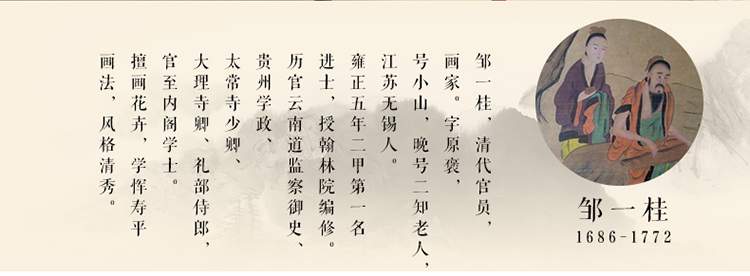 邹一桂，清代官员，
画家。字原褒，
号小山，晚号二知老人，
江苏无锡人。
雍正五年二甲第一名
进士，授翰林院编修。
历官云南道监察御史、
贵州学政、
太常寺少卿、
大理寺卿、礼部侍郎，
官至内阁学士。
擅画花卉，学恽寿平
画法，风格清秀。
邹一桂
1686-1772